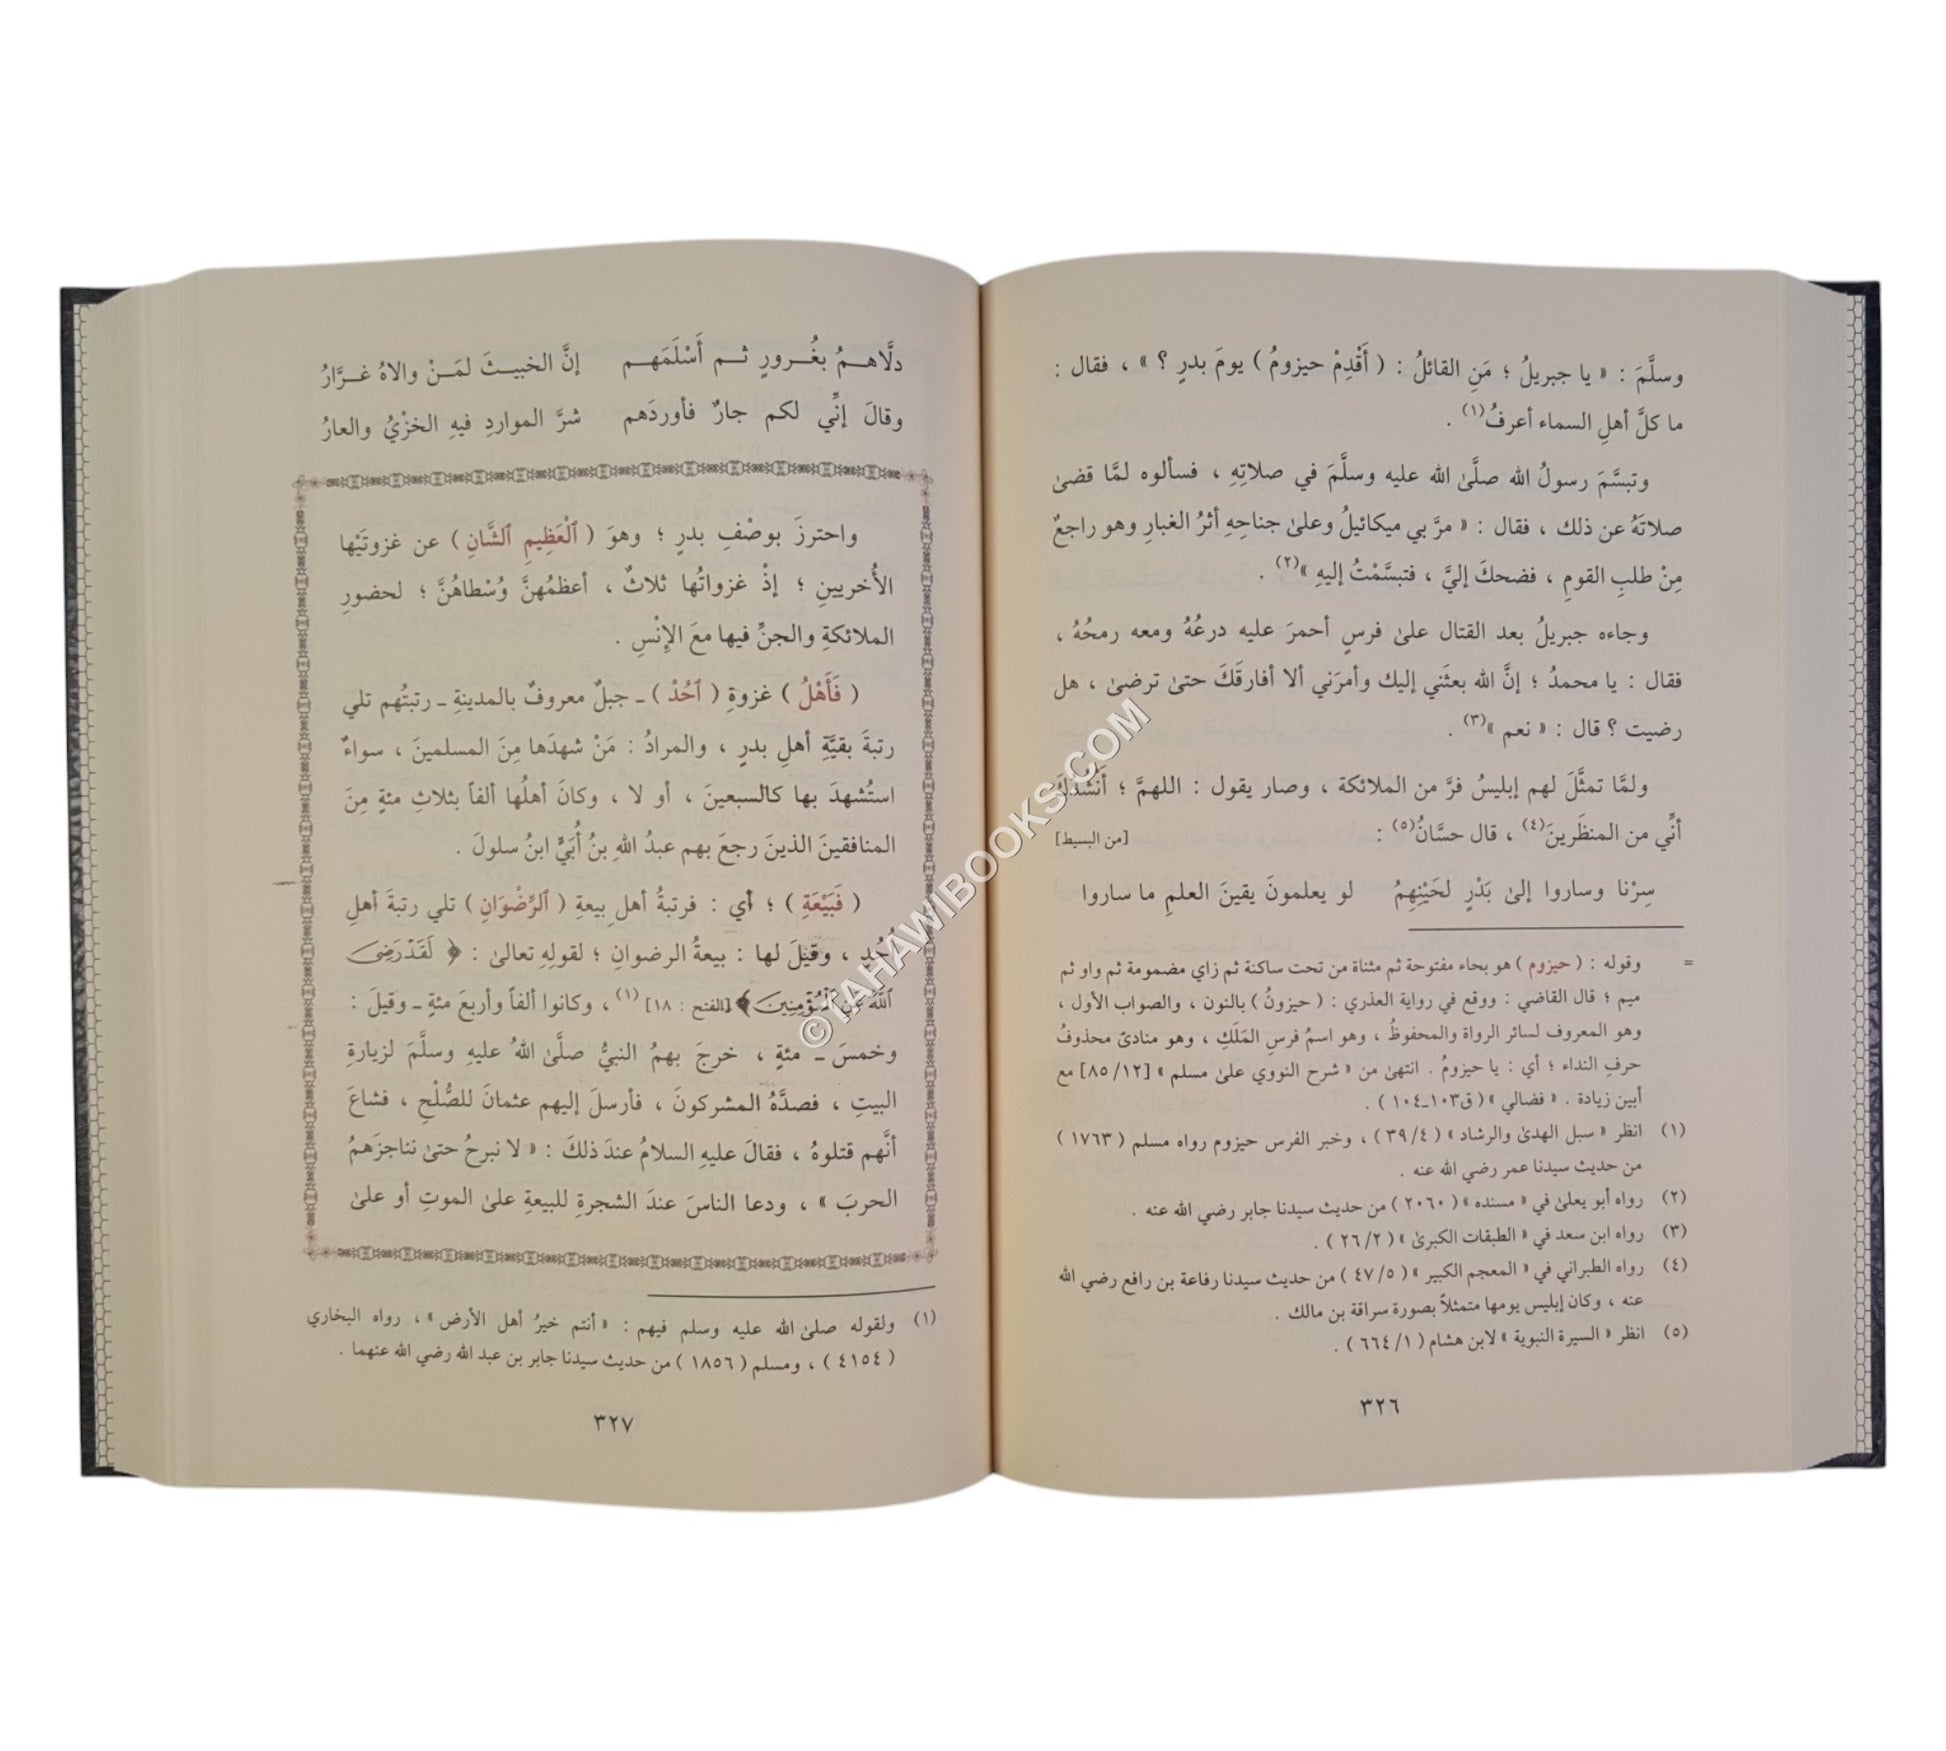 وسلَّمَ : « يا جبريلُ ؛ مَنِ القائلُ : ( أَقْدِمْ حيزومُ ) يومَ بدرٍ ؟ » ، فقال :
ما كلَّ أهلِ السماء أعرفُ(١) .
وتبسَّمَ رسولُ الله صلَّىٰ الله عليه وسلَّمَ في صلاتِهِ ، فسألوه لمَّا قضىٰ
صلاتَهُ عن ذلك ، فقال : « مرَّ بي ميكائيلُ وعلىٰ جناحِهِ أثرُ الغبارِ وهو راجعٌ
مِنْ طلبِ القومِ ، فضحكَ إليَّ ، فتبسَّمْتُ إليهِ »(٢) .
وجاءه جبريلُ بعد القتال علىٰ فرسٍ أحمرَ عليه درعُهُ ومعه رمحُهُ ،
فقال : يا محمدُ ؛ إنَّ الله بعثَني إليك وأمرَني ألا أفارقَكَ حتىٰ ترضىٰ ، هل
رضيت ؟ قال : « نعم »(٣) .
ولمَّا تمثَّلَ لهم إبليسُ فرَّ من الملائكة ، وصار يقول : اللهمَّ ؛ أَنْشُدُكَ
أنِّي من المنظَرينَ(٤) ، قال حسَّانُ(٥) : [من البسيط]
سِرْنا وساروا إلىٰ بَدْرٍ لحَيْنِهِمُ لو يعلمونَ يقينَ العلمِ ما ساروا
= وقوله : ( حيزوم ) هو بحاء مفتوحة ثم مثناة من تحت ساكنة ثم زاي مضمومة ثم واو ثم
ميم ؛ قال القاضي : ووقع في رواية العذري : ( حيزونُ ) بالنون ، والصواب الأول ،
وهو المعروف لسائر الرواة والمحفوظُ ، وهو اسمُ فرسِ المَلَكِ ، وهو منادىً محذوفُ
حرفِ النداء ؛ أي : يا حيزومُ . انتهىٰ من « شرح النووي علىٰ مسلم » [١٢/ ٨٥] مع
أبين زيادة . « فضالي » ( ق١٠٣ـ١٠٤ ) .
(١) انظر « سبل الهدىٰ والرشاد » ( ٤/ ٣٩ ) ، وخبر الفرس حيزوم رواه مسلم ( ١٧٦٣ )
من حديث سيدنا عمر رضي الله عنه .
(٢) رواه أبو يعلىٰ في « مسنده » ( ٢٠٦٠ ) من حديث سيدنا جابر رضي الله عنه .
(٣) رواه ابن سعد في « الطبقات الكبرىٰ » ( ٢/ ٢٦ ) .
(٤) رواه الطبراني في « المعجم الكبير » ( ٥/ ٤٧ ) من حديث سيدنا رفاعة بن رافع رضي الله
عنه ، وكان إبليس يومها متمثلاً بصورة سراقة بن مالك .
(٥) انظر « السيرة النبوية » لابن هشام ( ١/ ٦٦٤ ) .
٣٢٦
دلَّاهــمُ بغُــرورٍ ثــم أَسْلَمَهــم إنَّ الخبيــثَ لمَــنْ والاهُ غــرَّارُ
وقالَ إنِّي لكم جارٌ فأوردَهم شرَّ المواردِ فيهِ الخزْيُ والعارُ
واحترزَ بوصْفِ بدرٍ ؛ وهوَ ( ٱلْعَظِيمِ ٱلشَّانِ ) عن غزوتَيْها
الأُخريينِ ؛ إذْ غزواتُها ثلاثٌ ، أعظمُهنَّ وُسْطاهُنَّ ؛ لحضورِ
الملائكةِ والجنِّ فيها معَ الإِنْسِ .
( فَأَهْلُ ) غزوةِ ( ٱحُدْ ) ـ جبلٌ معروفٌ بالمدينةِ ـ رتبتُهم تلي
رتبةَ بقيَّةِ أهلِ بدرٍ ، والمرادُ : مَنْ شهدَها مِنَ المسلمينَ ، سواءٌ
استُشهدَ بها كالسبعينَ ، أو لا ، وكانَ أهلُها ألفاً بثلاثِ مئةٍ مِنَ
المنافقينَ الذينَ رجعَ بهم عبدُ اللهِ بنُ أُبَيٍّ ابنُ سلولَ .
( فَبَيْعَةِ ) ؛ أي : فرتبةُ أهلِ بيعةِ ( ٱلرِّضْوَانِ ) تلي رتبةَ أهلِ
أُحُدٍ ، وقيلَ لها : بيعةُ الرضوانِ ؛ لقولِهِ تعالىٰ : ﴿ لَقَدْ رَضِيَ
ٱللَّهُ عَنِ ٱلْمُؤْمِنِينَ ﴾ [الفتح : ١٨] (١) ، وكانوا ألفاً وأربعَ مئةٍ ـ وقيلَ :
وخمسَ ـ مئةٍ ، خرجَ بهمُ النبيُّ صلَّىٰ اللهُ عليهِ وسلَّمَ لزيارةِ
البيتِ ، فصدَّهُ المشركونَ ، فأرسلَ إليهم عثمانَ للصُّلْحِ ، فشاعَ
أنَّهم قتلوهُ ، فقالَ عليهِ السلامُ عندَ ذلكَ : « لا نبرحُ حتىٰ نناجزَهمُ
الحربَ » ، ودعا الناسَ عندَ الشجرةِ للبيعةِ علىٰ الموتِ أو علىٰ
(١) ولقوله صلىٰ الله عليه وسلم فيهم : « أنتم خيرُ أهل الأرض » ، رواه البخاري
( ٤١٥٤ ) ، ومسلم ( ١٨٥٦ ) من حديث سيدنا جابر بن عبد الله رضي الله عنهما .
٣٢٧
©TAHAWIBOOKS.COM